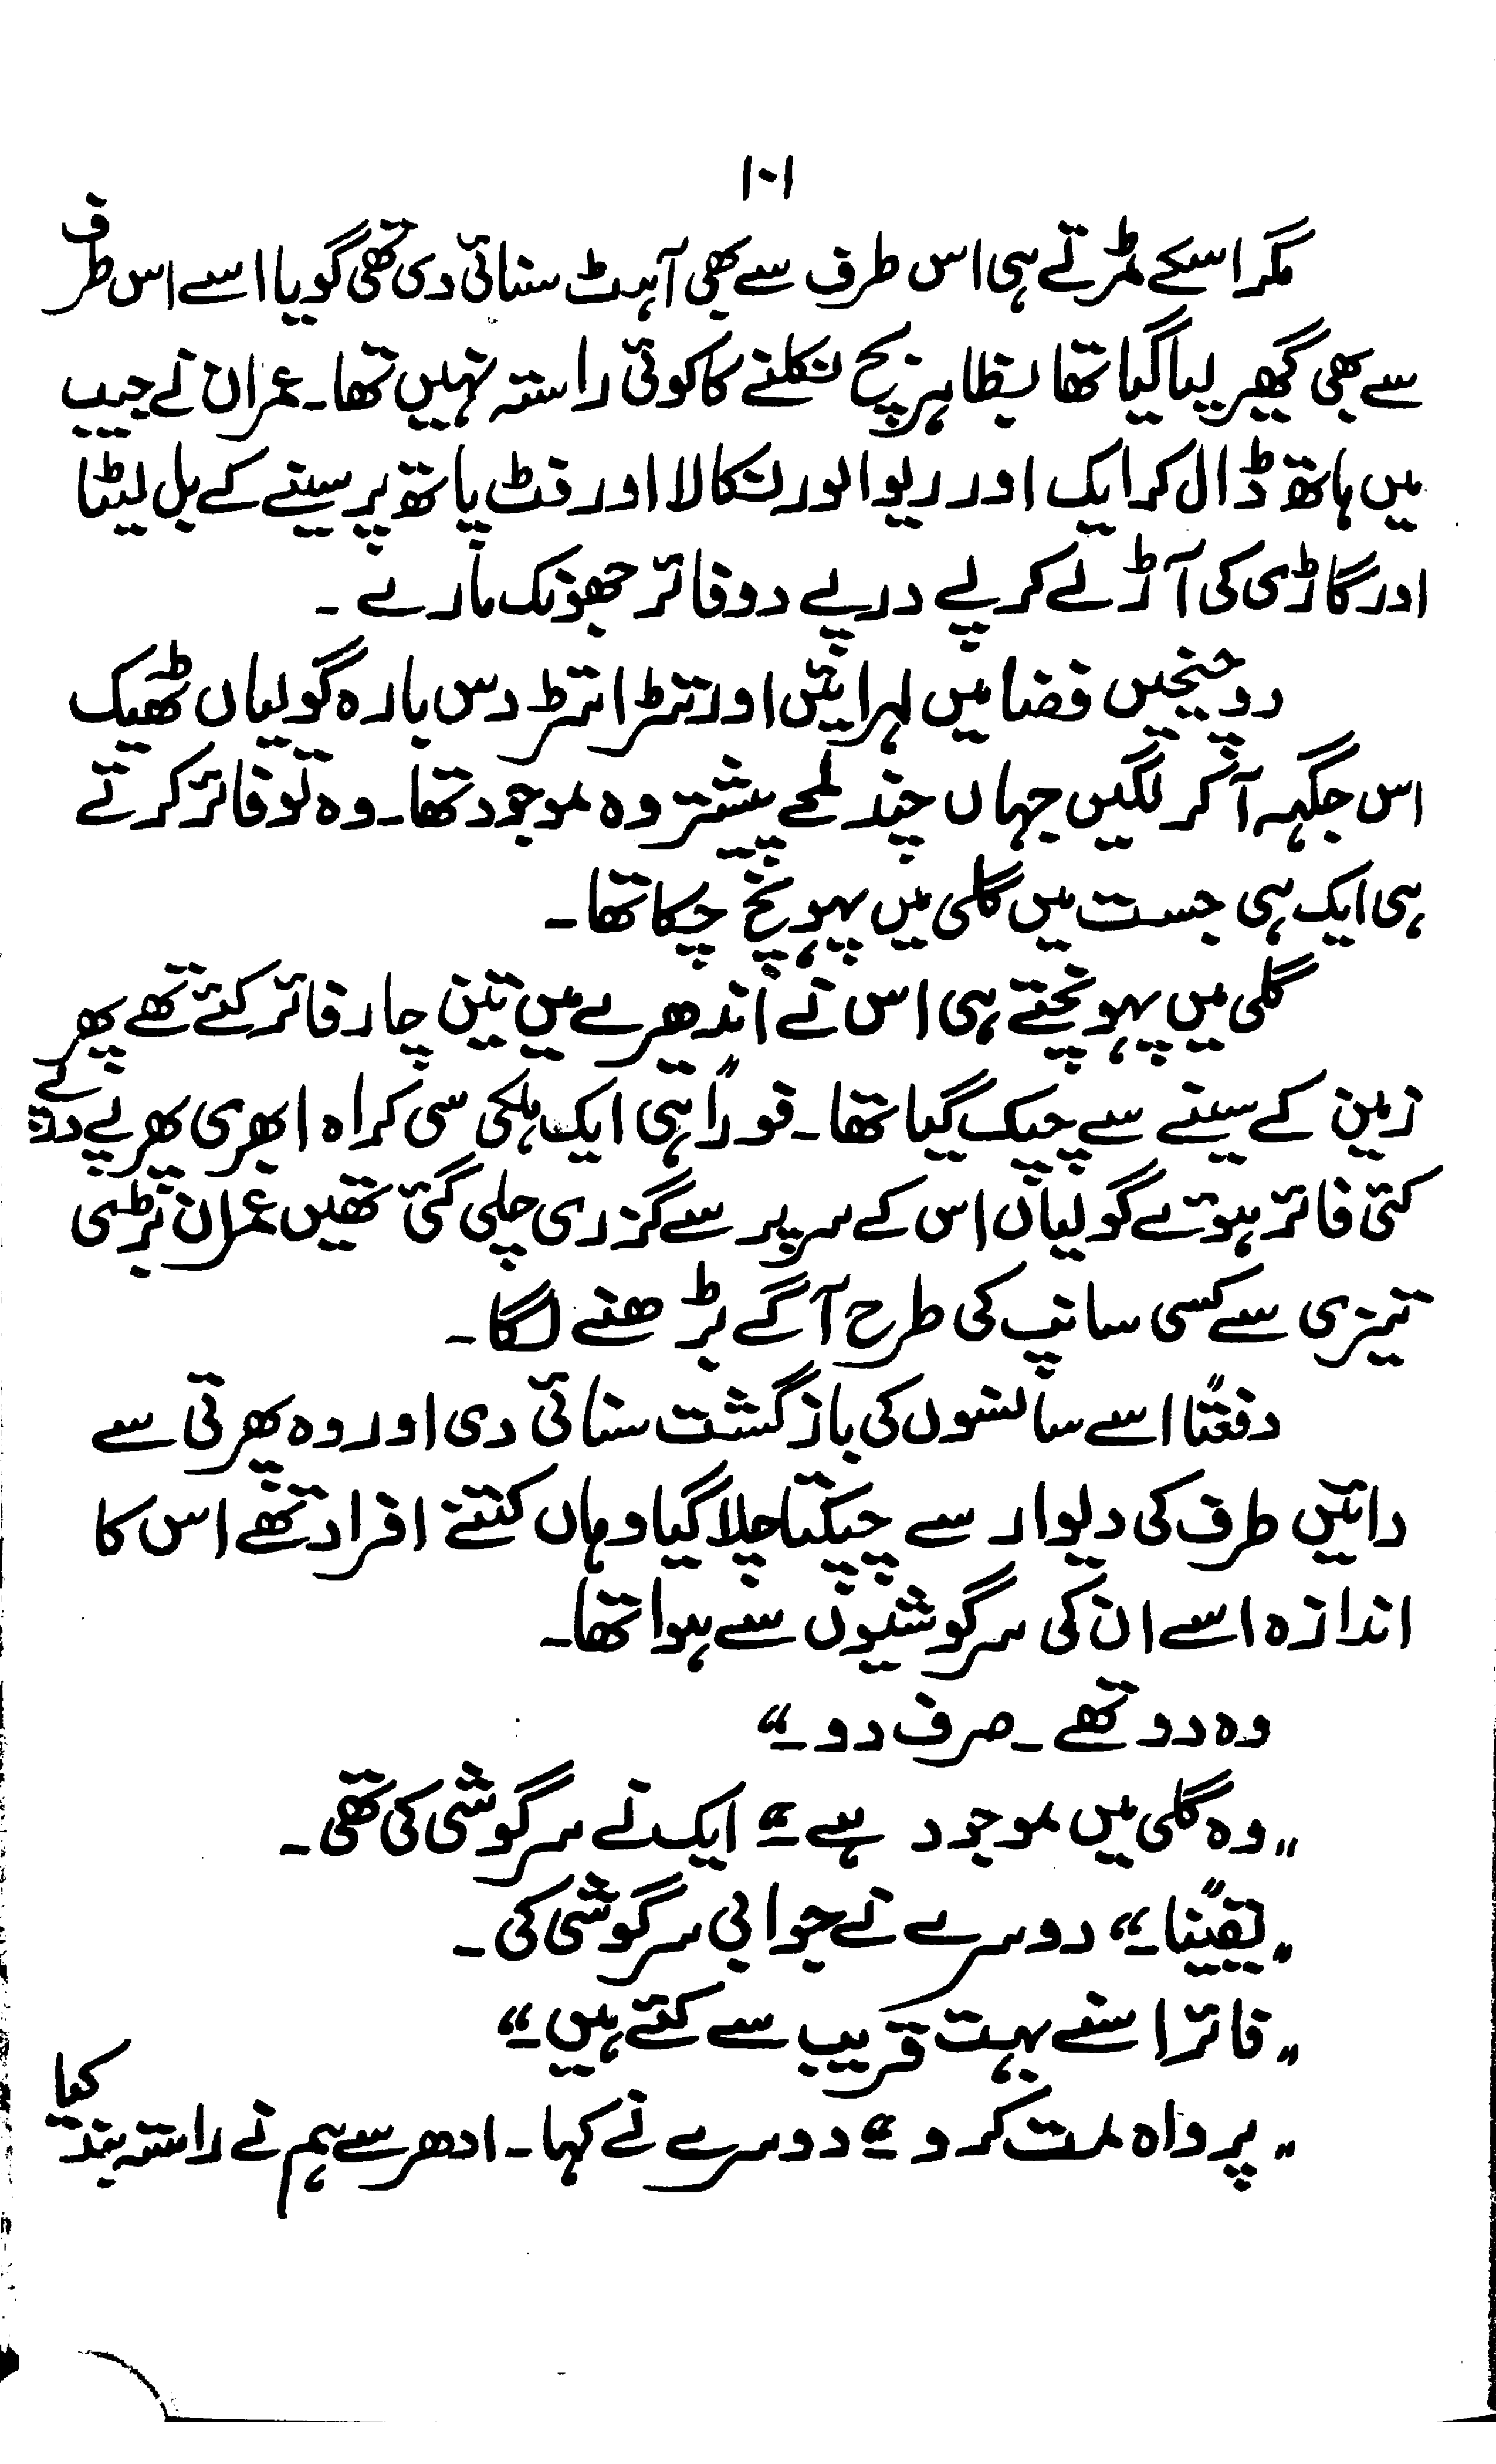 ۱۰۱
مگر اسکے مڑتے ہی اس طرف سے بھی آہٹ سنائی دی تھی گویا اسے اس طرف
سے بھی گھیر لیا گیا تھا بظاہر بچ نکلنے کا کوئی راستہ نہیں تھا۔ عمران نے جیب
میں ہاتھ ڈال کر ایک اور ریوالور نکالا اور فٹ پاتھ پر سینے کے بل لیٹا
اور گاڑی کی آڑ لے کر پے درپے دو فائر جھونک مارے ۔
دو چیخیں فضا میں لہرائیں اور تڑا تڑ دس بارہ گولیاں ٹھیک
اس جگہہ آ کر لگیں جہاں چند لمحے پیشتر وہ موجود تھا۔ وہ تو فائر کرتے
ہی ایک ہی جست میں گلی میں پہونچ چکا تھا۔
گلی میں پہونچتے ہی اس نے اندھرے میں تین چار فائر کئے تھے پھر
زمین کے سینے سے چپک گیا تھا۔ فوراً ہی ایک ہلکی سی کراہ ابھری پھر پے در پے
کئی فائر ہوئے گولیاں اس کے سر پر سے گزری چلی گئی تھیں عمران بڑی
تیزی سے کسی سانپ کی طرح آگے بڑھنے لگا۔
دفعتًا اسے سانسوں کی بازگشت سنائی دی اور وہ پھرتی سے
دائیں طرف کی دیوار سے چپکتا چلا گیا وہاں کتنے افراد تھے اس کا
اندازہ اسے ان کی سرگوشیوں سے ہوا تھا۔
وہ دو تھے ۔ صرف دو ۔"
"وہ گلی میں موجود ہے ۔" ایک نے سرگوشی کی تھی ۔
"یقینًا ۔" دوسرے نے جوابی سرگوشی کی ۔
"فائر اسنے بہت قریب سے کئے ہیں ۔"
"پرواہ مت کرو ۔" دوسرے نے کہا۔ ادھر سے ہم نے راستہ بند کیا